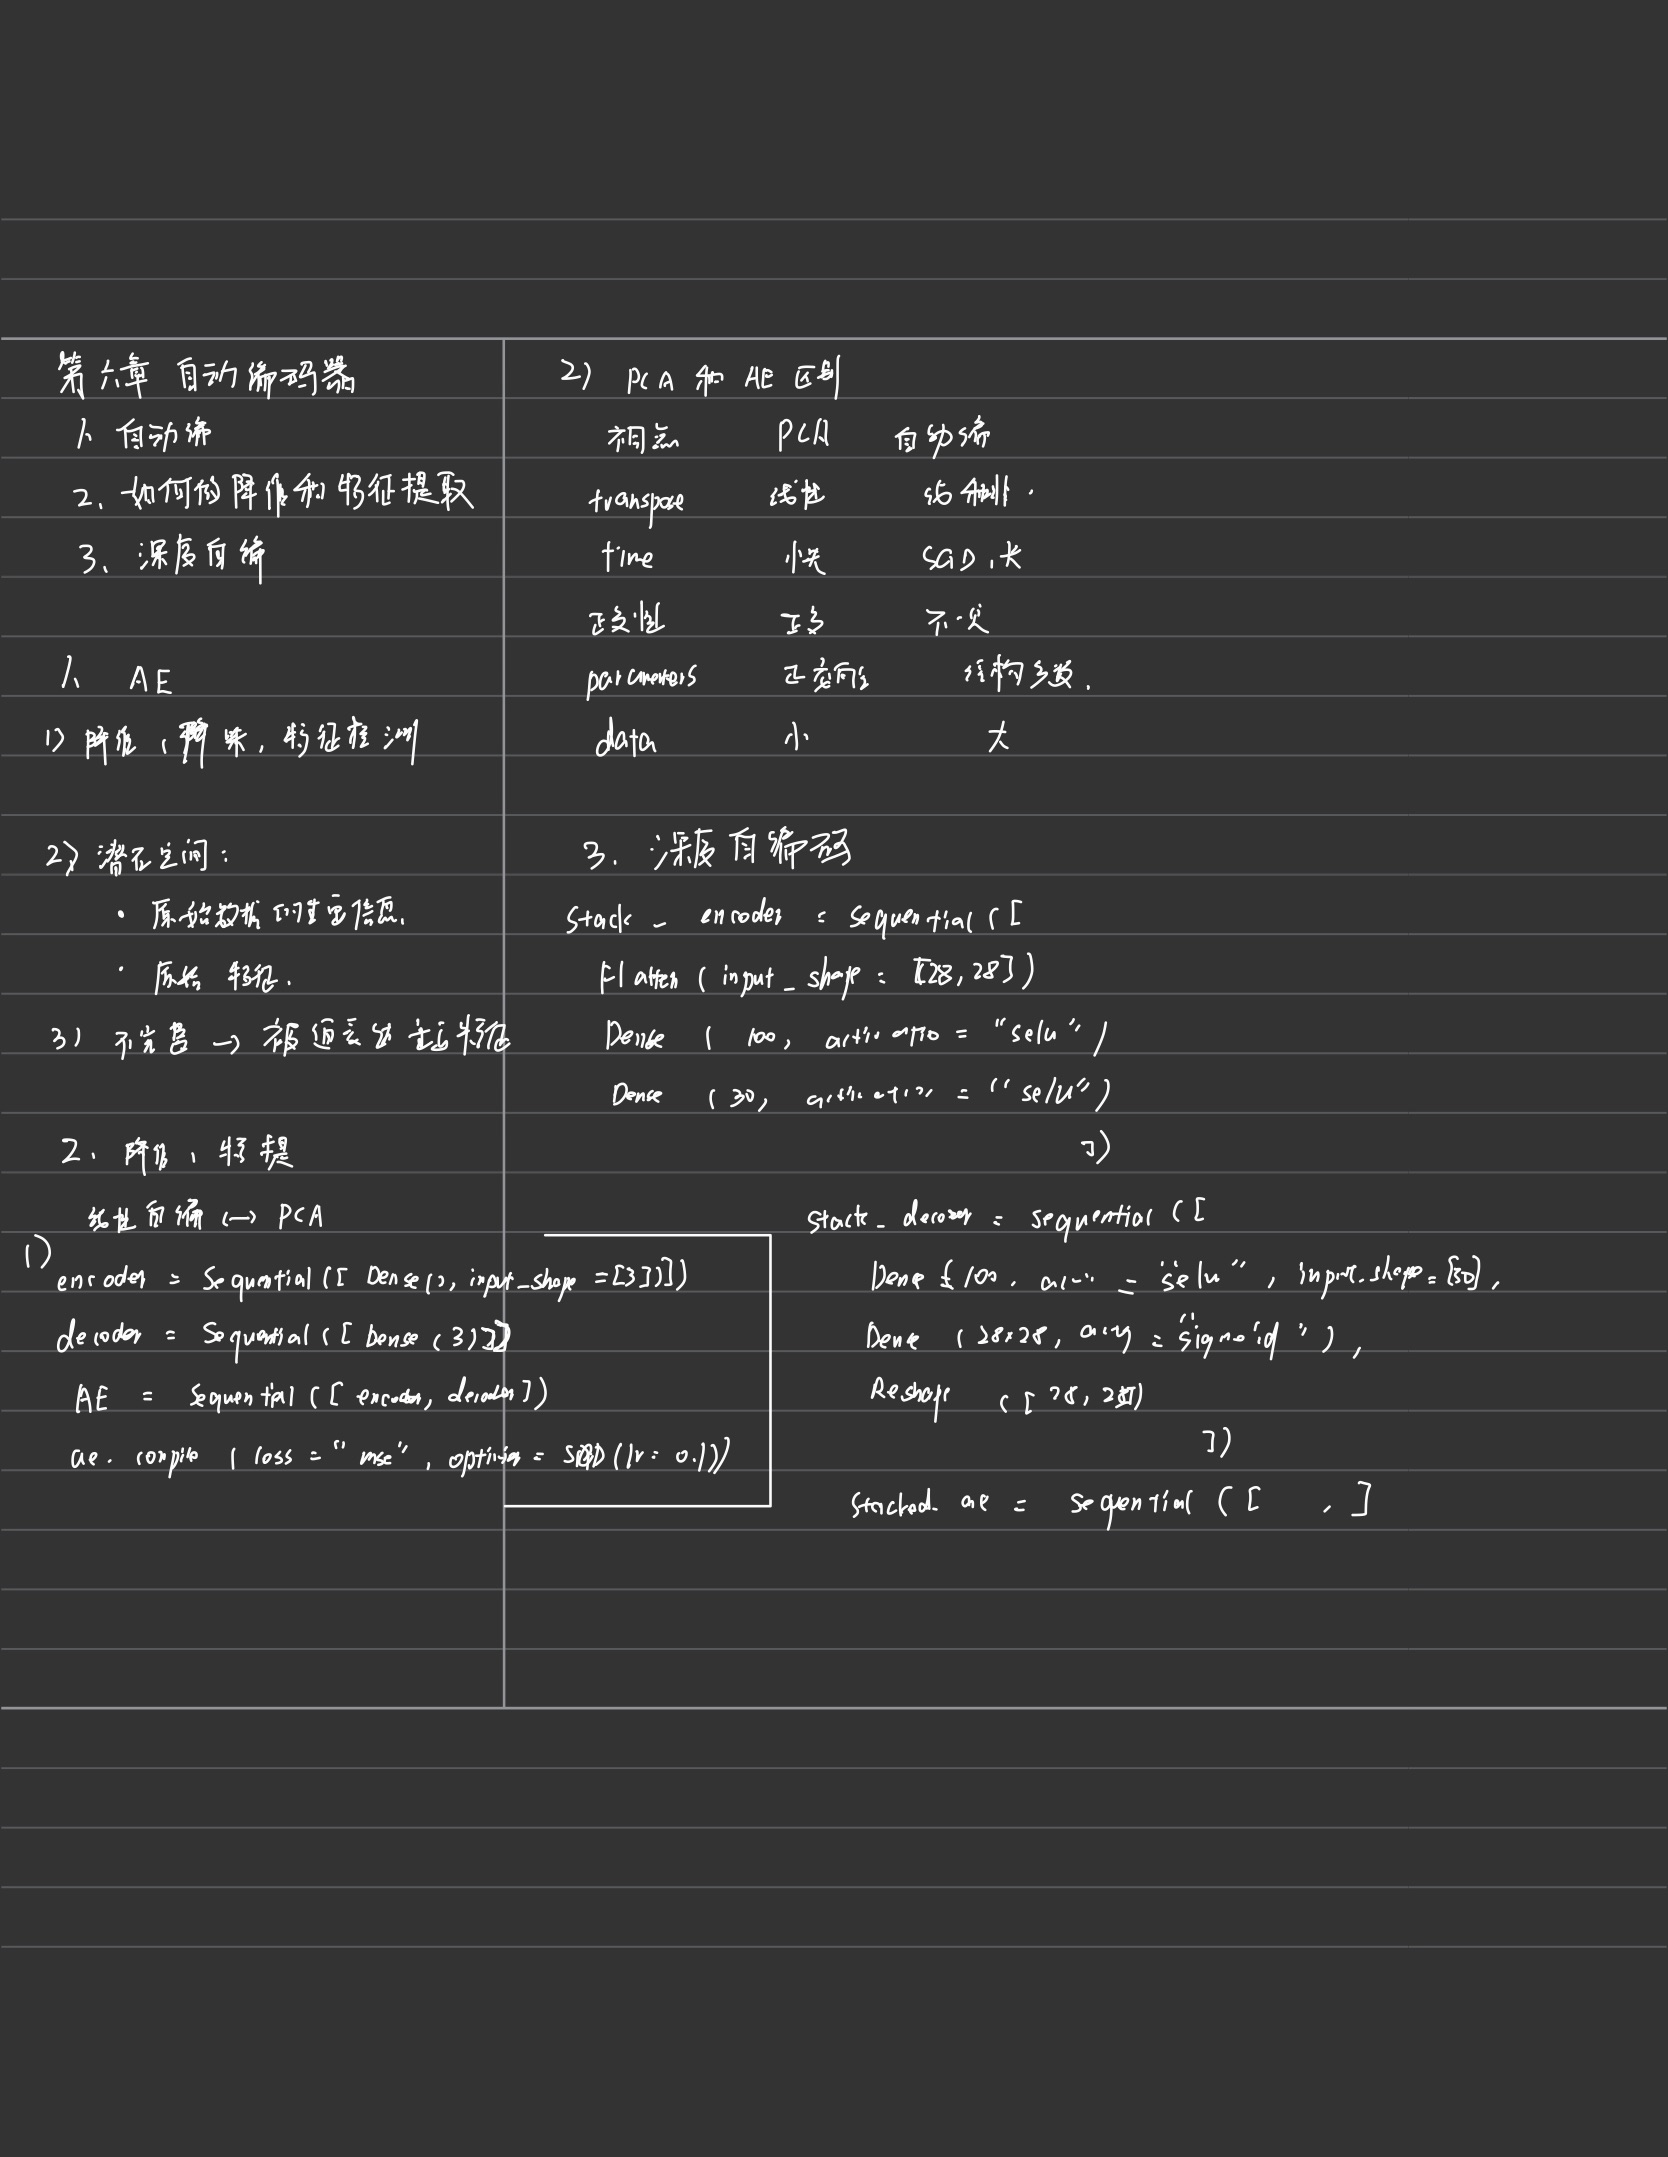 第六章 自动编码器
1、自动编
2、如何做降维和特征提取
3、深度自编
1、AE
1) 降维、降噪,特征检测
2) 潜在空间:
· 原始数据的重要信息.
· 原始 特征.
3) 不完备 → 被迫 主要特征
2、降维、特提
线性自编 ↔ PCA
1)
encoder = Sequential([ Dense( ), input_shape =[3])])
decoder = Sequential([ Dense (3)])
AE = Sequential([ encoder, decoder])
ae. compile ( loss = "mse", = SGD(lr= 0.1))
2) PCA 和 AE 区别
PCA 自动编
transpose 线性
time 快 SGD,长
正交性 正交 不一定
parameters 正交向 结构参数.
data 小 大
3. 深度自编码
Stack _ encoder = Sequential ([
Flatten ( input _ shape = [28, 28])
Dense ( 100, = "selu")
Dense (30, = "selu")
])
Stack_ decoder = Sequential ([
Dense ( 100. = "selu", input_shape = [30],
Dense ( 28×28, = "sigmoid"),
Reshape ([ 28, 28])
])
Stacked_ ae = Sequential ([ , ]